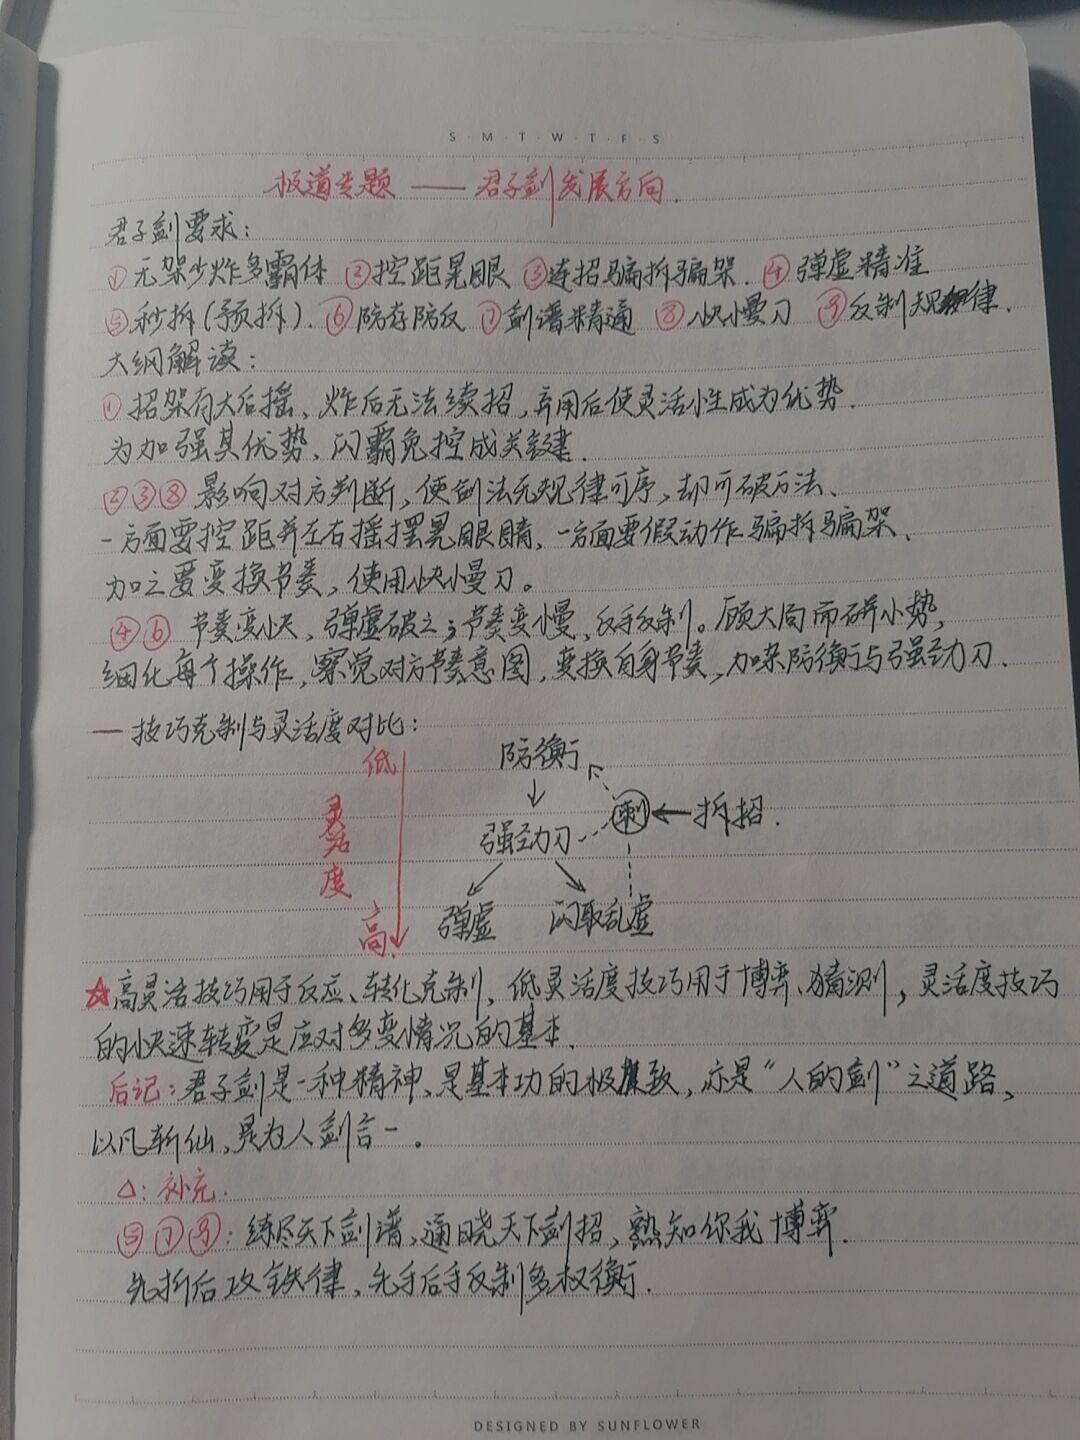 S·M·T·W·T·F·S
极道专题 —— 君子剑发展方向.
君子剑要求:
①无架少炸多霸体 ②控距晃眼 ③连招骗拆骗架. ④弹虚精准
⑤秒拆(预拆). ⑥防存防反 ⑦剑谱精通 ⑧快慢刀 ⑨反制规律.
大纲解读:
①招架有大后摇、炸后无法续招,弃用后使灵活性成为优势.
为加强其优势,闪霸免控成关键.
②③⑧影响对方判断,使剑法无规律可序,却可破万法、
一方面要控距并左右摇摆晃眼睛,一方面要假动作骗拆骗架、
加之要变换节奏,使用快慢刀。
④⑥ 节奏变快,弹虚破之;节奏变慢,反手反制。顾大局而研小势,
细化每个操作,察觉对方节奏意图,变换自身节奏,加杂防衡与强劲刀.
— 技巧克制与灵活度对比:
低
灵活度
高.
防衡
强劲刀
刺
拆招.
弹虚
闪取乱虚
☆高灵活技巧用于反应、转化克制,低灵活度技巧用于博弈、猜测,灵活度技巧
的快速转变是应对多变情况的基本.
后记:君子剑是一种精神、是基本功的极致,亦是“人的剑”之道路,
以凡斩仙,是为人剑合一。
△:补充.
⑤⑦⑨:练尽天下剑谱,通晓天下剑招,熟知你我博弈.
先拆后攻铁律、先手后手反制多权衡.
DESIGNED BY SUNFLOWER